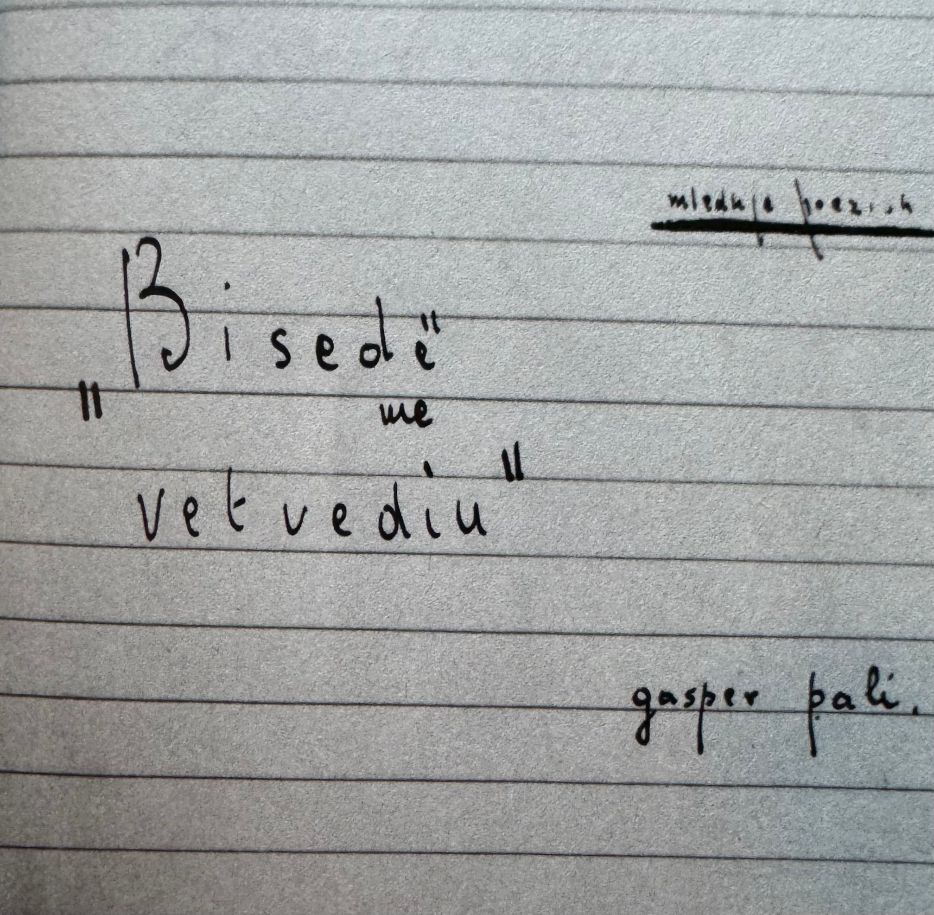 mledhje poezish
Bisedë
"
me
vetvediu"
gasper pali.